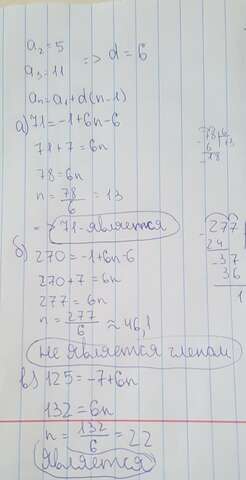 a₂=5
a₃=11 => d=6
aₙ=a₁+d(n-1)
а) 71=-1+6n-6
71+7=6n
78=6n
n=78/6=13
=> 71-является
б) 270=-1+6n-6
270+7=6n
277=6n
n=277/6≈46,1
не является членом
в) 125=-7+6n
132=6n
n=132/6=22
является
78 6
6 13
18
277
24
37
36
1